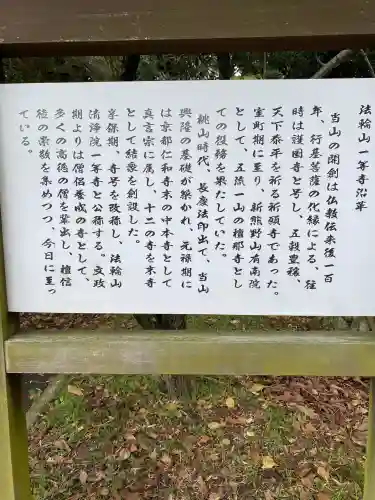 法輪山一年寺沿革
当山の開創は仏教伝来後一百
年、行基菩薩の化縁による、往
時は護国寺と号し、五穀豊穣、
天下泰平を祈る祈願寺であった。
室町期に至り、新熊野山有南院
として、五流一山の檀那寺とし
ての役務を果たしていた。
桃山時代、長慶法印出て、当山
興隆の基礎が築かれ、元禄期に
は京都仁和寺末の中本寺として
真言宗に属し、十二の寺を末寺
として結衆を創設した。
享保期、寺号を改称し、法輪山
清浄院一年寺と公称する。文政
期よりは僧侶養成の寺として、
多くの高徳の僧を輩出し、檀信
徒の崇敬を集めつつ、今日に至っ
ている。